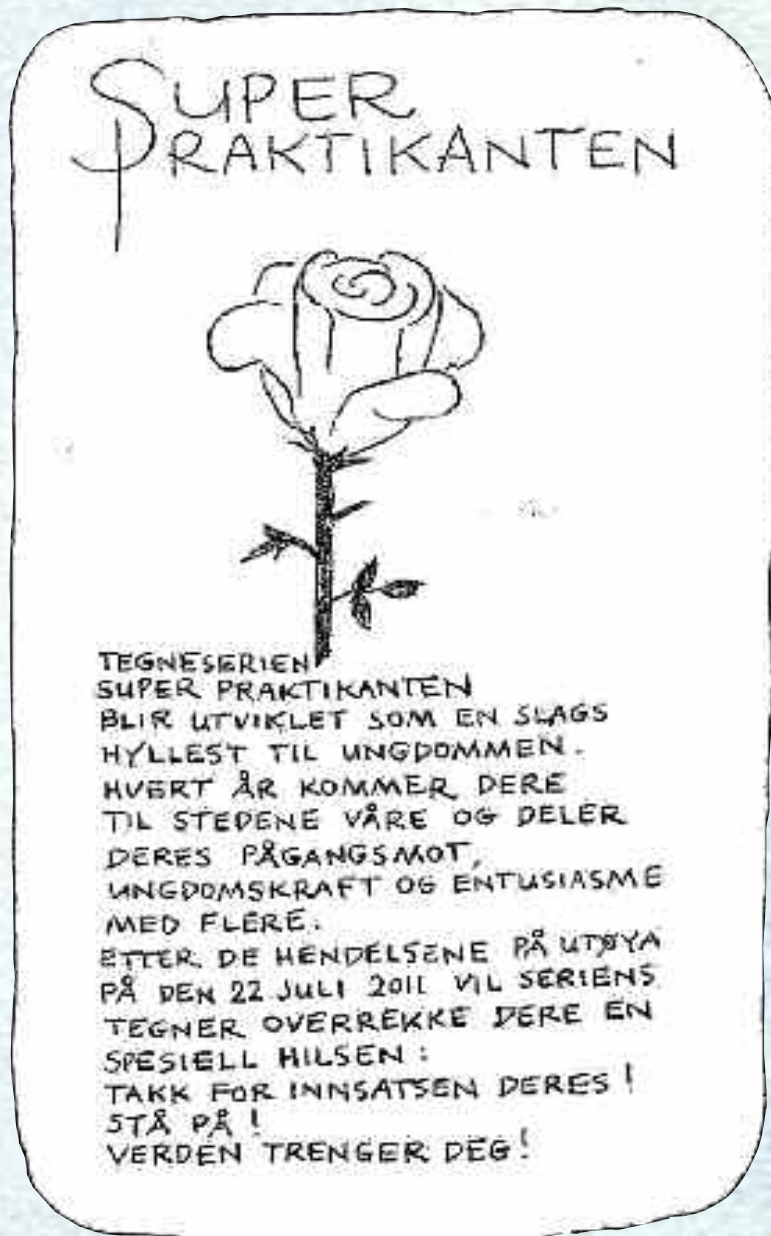 SUPER
PRAKTIKANTEN
TEGNESERIEN
SUPER PRAKTIKANTEN
BLIR UTVIKLET SOM EN SLAGS
HYLLEST TIL UNGDOMMEN.
HVERT ÅR KOMMER DERE
TIL STEDENE VÅRE OG DELER
DERES PÅGANGSMOT,
UNGDOMSKRAFT OG ENTUSIASME
MED FLERE.
ETTER DE HENDELSENE PÅ UTØYA
PÅ DEN 22 JULI 2011 VIL SERIENS
TEGNER OVERREKKE DERE EN
SPESIELL HILSEN:
TAKK FOR INNSATSEN DERES!
STÅ PÅ!
VERDEN TRENGER DEG!